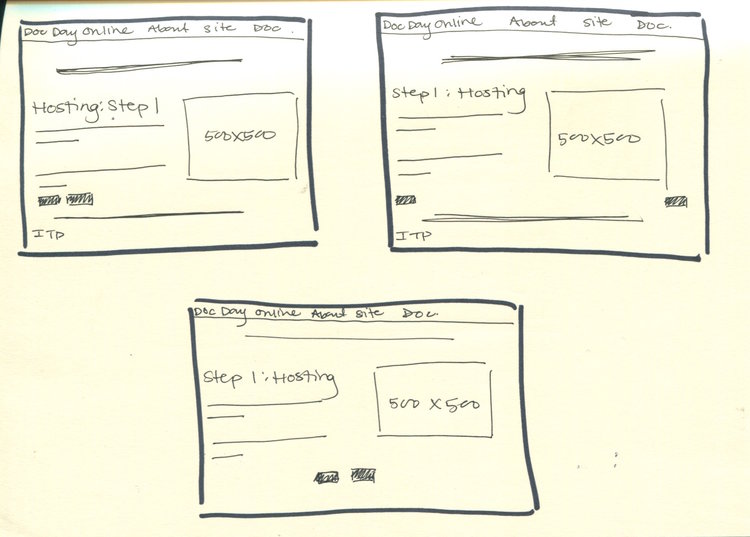 Doc Day Online About Site Doc.
Hosting: Step 1
500x500
ITP
Doc Day Online About Site Doc.
Step 1: Hosting
500x500
ITP
Doc Day Online About Site Doc.
Step 1: Hosting
500 x 500